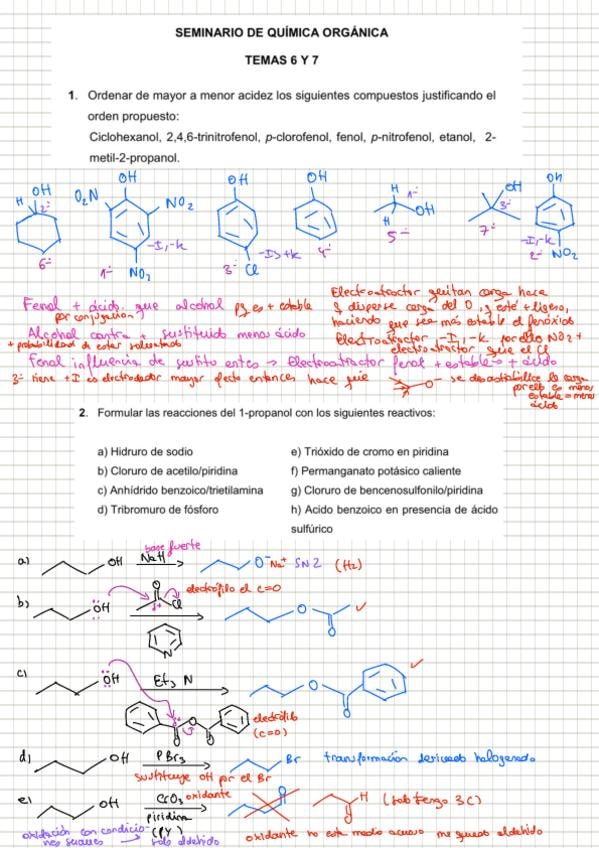 SEMINARIO DE QUÍMICA ORGÁNICA
TEMAS 6 Y 7
1. Ordenar de mayor a menor acidez los siguientes compuestos justificando el
orden propuesto:
Ciclohexanol, 2,4,6-trinitrofenol, p-clorofenol, fenol, p-nitrofenol, etanol, 2-
metil-2-propanol.
H OH 2º 6º
OH O2N NO2 NO2 -I,-K 1º
OH Cl -I>+K 3º
OH 4º
H H 1º OH 5º
OH 3º 7º
OH -I,-K NO2 2º
Fenol + ácido que alcohol pq es + estable
por conjugación
Alcohol contra + sustituido menos ácido
+ probabilidad de estar solvatado
Electroatractor quitan carga hace
q disperse carga del O,
haciendo que sea más estable el fenóxido
Electroatractor -I,-K por ello NO2 +
electroatractor que el Cl
Fenol influencia de sustituyentes → Electroatractor fenol + estable → + ácido
3º tiene +I es electrodador mayor efecto entonces hace que
O- se desestabilice la carga
por ello es menos
estable = menos
ácido
2. Formular las reacciones del 1-propanol con los siguientes reactivos:
a) Hidruro de sodio
b) Cloruro de acetilo/piridina
c) Anhídrido benzoico/trietilamina
d) Tribromuro de fósforo
e) Trióxido de cromo en piridina
f) Permanganato potásico caliente
g) Cloruro de bencenosulfonilo/piridina
h) Acido benzoico en presencia de ácido
sulfúrico
a) OH base fuerte NaH O- Na+ SN2 (H2)
b) OH O Cl δ+ electrófilo el C=O N O O
c) OH Et3 N O O
O O O electrófilo
(C=O)
d) OH PBr3 Br transformación derivado halogenado
sustituye OH por el Br
e) OH CrO3 oxidante O H (solo tengo 3C)
piridina
oxidación con condicio- (PY)
nes suaves → solo aldehido
oxidante no este medio acuoso me quedo aldehido